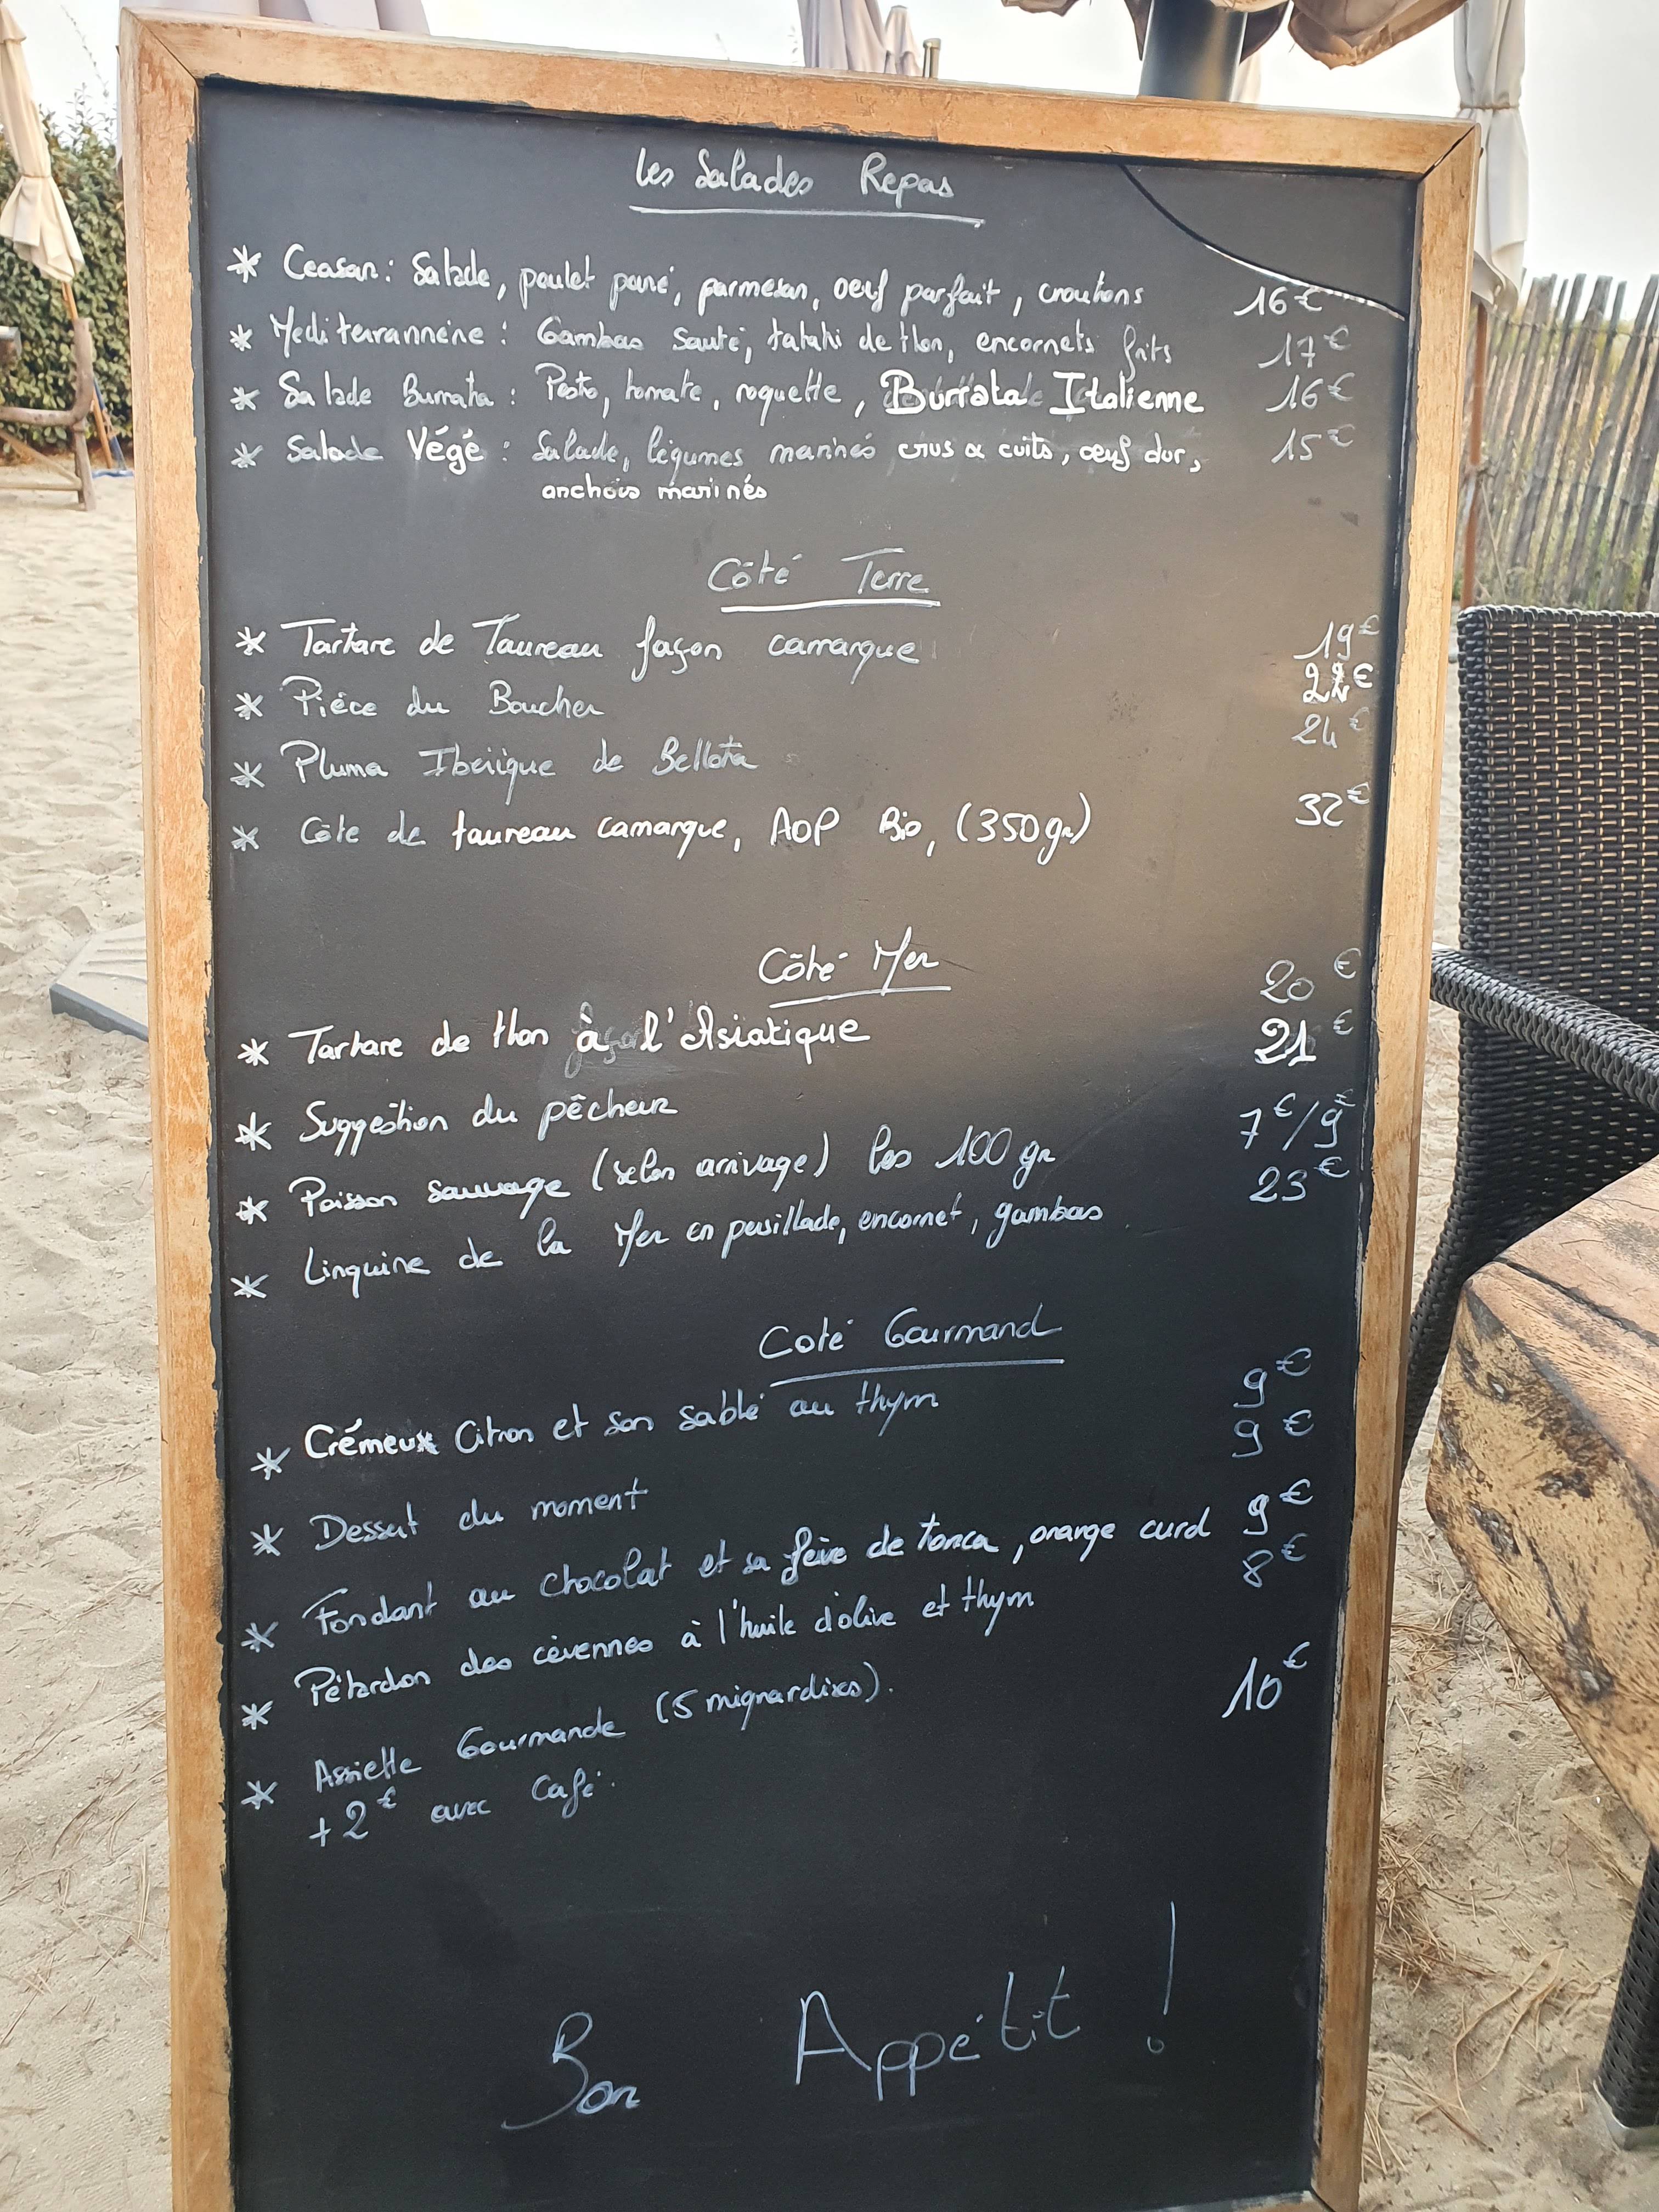 Les Salades Repas
* Ceasar : Salade, poulet pané, parmesan, oeuf parfait, croutons 16€
* Mediterrannéne : Gambas sauté, tataki de thon, encornets frits 17€
* Salade Burrata : Pesto, tomate, roquette, Burrata Italienne 16€
* Salade Végé : Salade, légumes marinés crus & cuits, oeuf dur, 15€
anchois marinés
Côté Terre
* Tartare de Taureau façon camarque 19€
* Pièce du Boucher 22€
* Pluma Iberique de Bellota 24€
* Côte de taureau camarque, AOP Bio, (350gr) 32€
Côté Mer
* Tartare de thon à l'Asiatique 20€
* Suggestion du pêcheur 21€
* Poisson sauvage (selon arrivage) les 100 gr 7€/9€
* Linguine de la Mer en persillade, encornet, gambas 23€
Coté Gourmand
* Crémeux Citron et son sablé au thym 9€
* Dessert du moment 9€
* Fondant au chocolat et sa fève de tonca, orange curd 9€
* Pélardon des cévennes à l'huile d'olive et thym 8€
* Assiette Gourmande (5 mignardises). 10€
+2€ avec Café.
Bon Appétit !